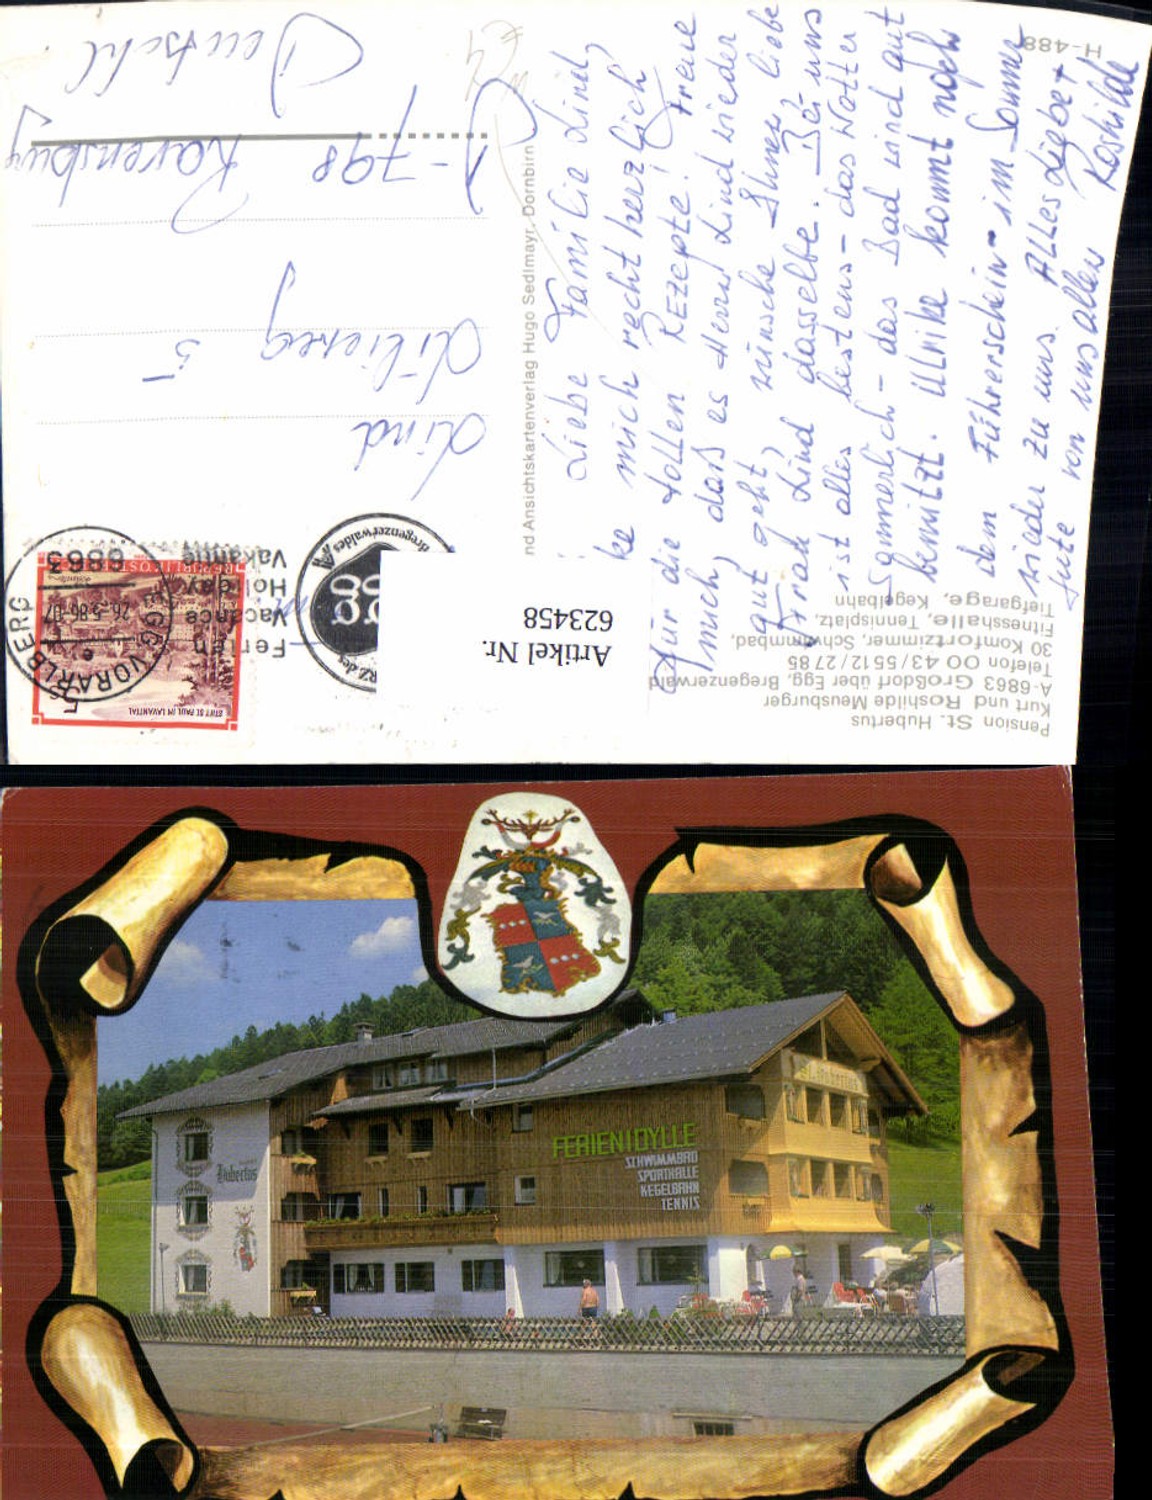 Pension St. Hubertus
Kurt und Roshilde Meusburger
A-6863 Großdorf über Egg, Bregenzerwald
Telefon 00 43/55 12/27 85
30 Komfortzimmer, Schwimmbad,
Fitnesshalle, Tennisplatz,
Tiefgarage, Kegelbahn
H-488
nd Ansichtskartenverlag Hugo Sedlmayr, Dornbirn
Liebe Familie Lind,
ke mich recht herzlich
für die tollen Rezepte! Freue
mich, daß es Herrn Lind wieder
gut geht, wünsche Ihnen, liebe
Frau Lind dasselbe. Bei uns
ist alles bestens - das Wetter
sommerlich - das Bad wird gut
benützt. Ulrike kommt nach
dem Führerschein - im Sommer
wieder zu uns. Alles Liebe +
Gute von uns allen Roshilde
Artikel Nr.
623458
STIFT ST. PAUL IM LAVANTTAL
REPUBLIK ÖSTERREICH
6863
26.-5.86-07
EGG VORARLBERG
Ferien
Vacance
Holiday
Vakantie
Lind
Lilienweg 5
D-798 Ravensburg
Deutschl.
St. Hubertus
Hubertus
FERIENIDYLLE
SCHWIMMBAD
SPORTHALLE
KEGELBAHN
TENNIS